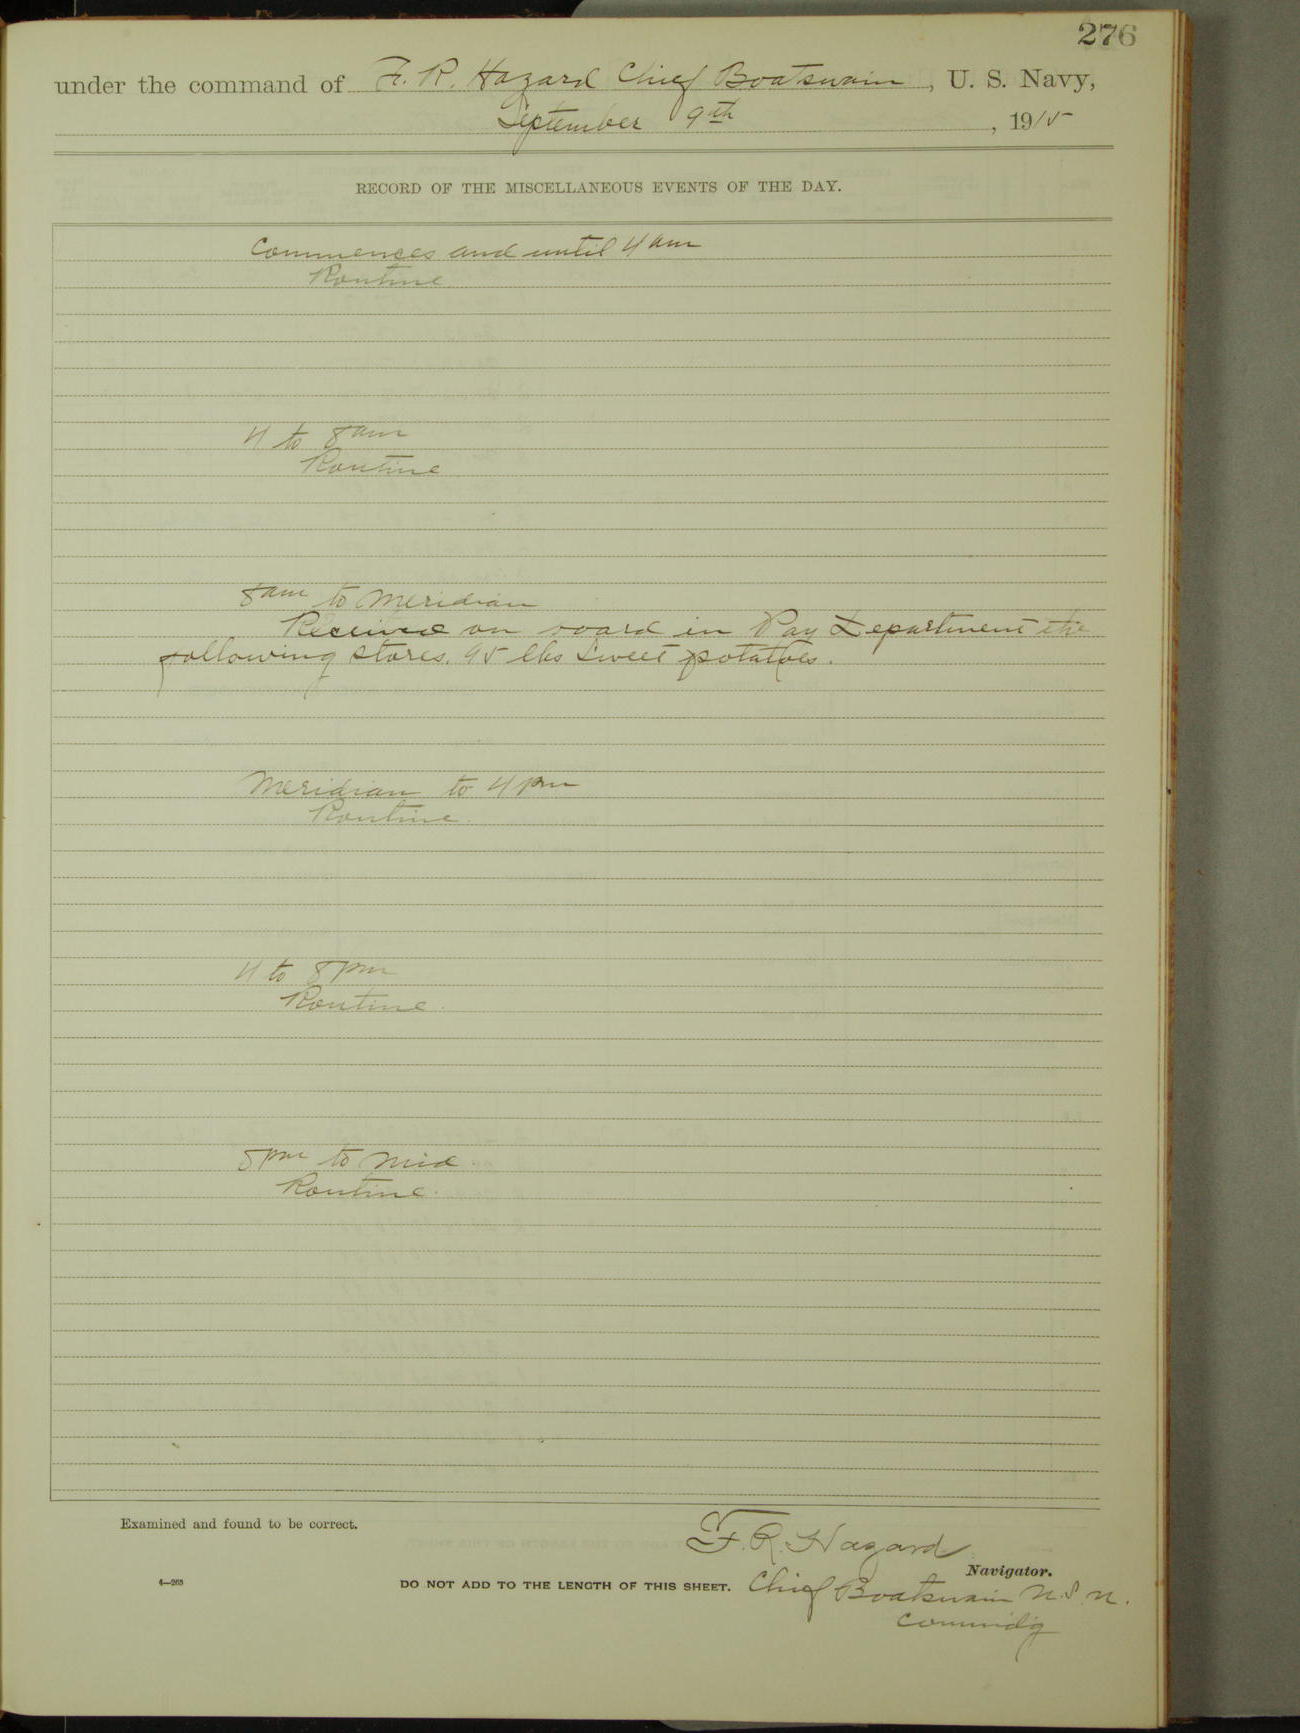 276
under the command of F. R. Hazard Chief Boatswain, U. S. Navy,
September 9th, 1915
RECORD OF THE MISCELLANEOUS EVENTS OF THE DAY.
Commences and until 4 am
Routine
4 to 8 am
Routine
8 am to Meridian
Received on board in Pay Department the
following stores. 95 lbs Sweet potatoes.
Meridian to 4 pm
Routine.
4 to 8 pm
Routine.
8 pm to Mid.
Routine.
Examined and found to be correct.
F. R. Hazard
Navigator.
4—265
DO NOT ADD TO THE LENGTH OF THIS SHEET.
Chief Boatswain U.S.N.
Commdg